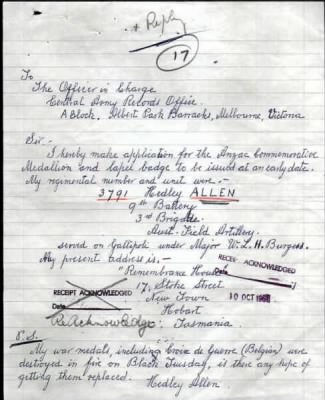 + Reply
17
To
The Officer in Charge
Central Army Records Office.
A Block, Albert Park Barracks, Melbourne, Victoria
Sir -
I hereby make application for the Anzac Commemorative
Medallion and lapel badge to be issued at an early date.
My regimental number and unit were :-
3791 Hedley ALLEN
9th Battery
3rd Brigade
Aust. Field Artillery.
served on Gallipoli under Major W.L.H. Burgess.
My present address is :-
"Remembrance House
RECEIPT ACKNOWLEDGED
Date
17, Stoke Street
RECEIPT ACKNOWLEDGED
Date
New Town
10 OCT
Hobart
Tasmania
P.S.
My war medals, including Croix de Guerre (Belgian) were
destroyed in fire on Black Tuesday, is there any hope of
getting them replaced.
Hedley Allen